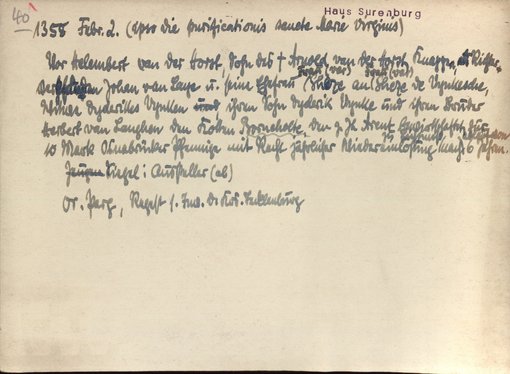 40
Haus Surenburg
1358 Febr. 2. (ipso die purificationis sancte Marie virginis)
Vor Helembert van der Horst, Sohn des † Arnold van der Horst, Knappe, als Richter
verkaufen Johan van Lage u. seine Ehefrau Sheze an Sheze de Vynkesche,
Witwe Dyderikes Vynken und ihren Sohn Dyderik Vynke und ihren Bruder
Herbert van Langhen den Kotten den z. Zt. Arent bewirtschaftet, für
10 Mark Osnabrücker Pfennige mit Recht jährlicher Wiedereinlösung nach 6 Jahren.
Zeugen Siegel: Aussteller (ab)
Or. Perg., Regest s. Inv. Dr. Kr. Tecklenburg